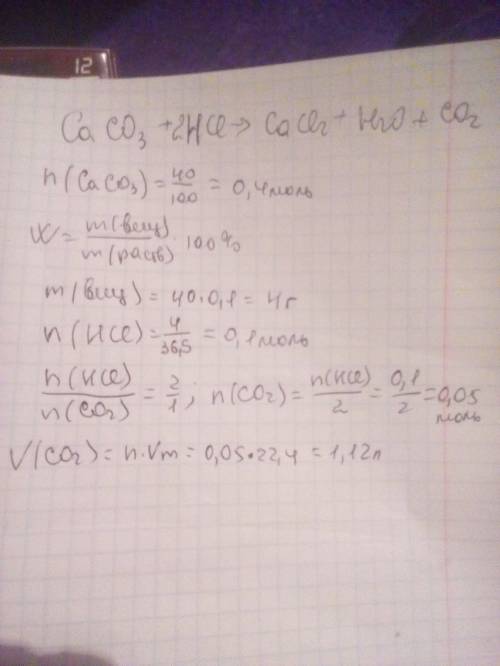 12
CaCO3 + 2HCl → CaCl2 + H2O + CO2
n(CaCO3) = 40/100 = 0,4 моль
W = m(вещ)/m(раств) · 100%
m(вещ) = 40·0,1 = 4г
n(HCl) = 4/36,5 = 0,1 моль
n(HCl)/n(CO2) = 2/1; n(CO2) = n(HCl)/2 = 0,1/2 = 0,05 моль
V(CO2) = n·Vm = 0,05·22,4 = 1,12л